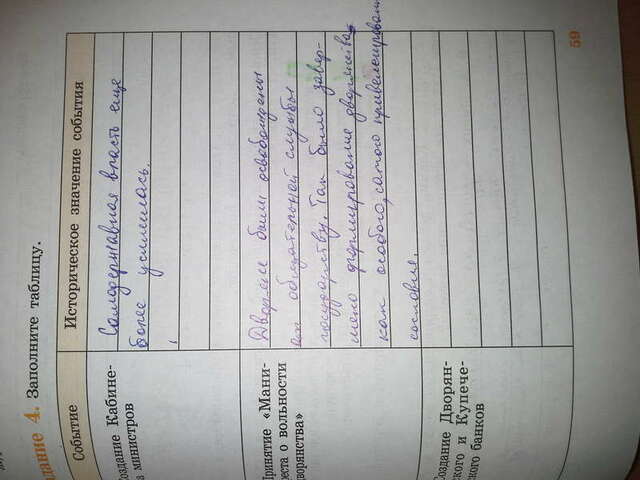 дание 4. Заполните таблицу.
Событие
Историческое значение события
оздание Кабине-
а министров
Самодержавная власть еще
более усилилась.
Принятие «Мани-
еста о вольности
дворянства»
Дворяне были освобождены
от обязательной службы
государству. Так было завер-
шено формирование дворянства
как особого, самого привилегированн
сословия.
оздание Дворян-
ского и Купече-
ского банков
59